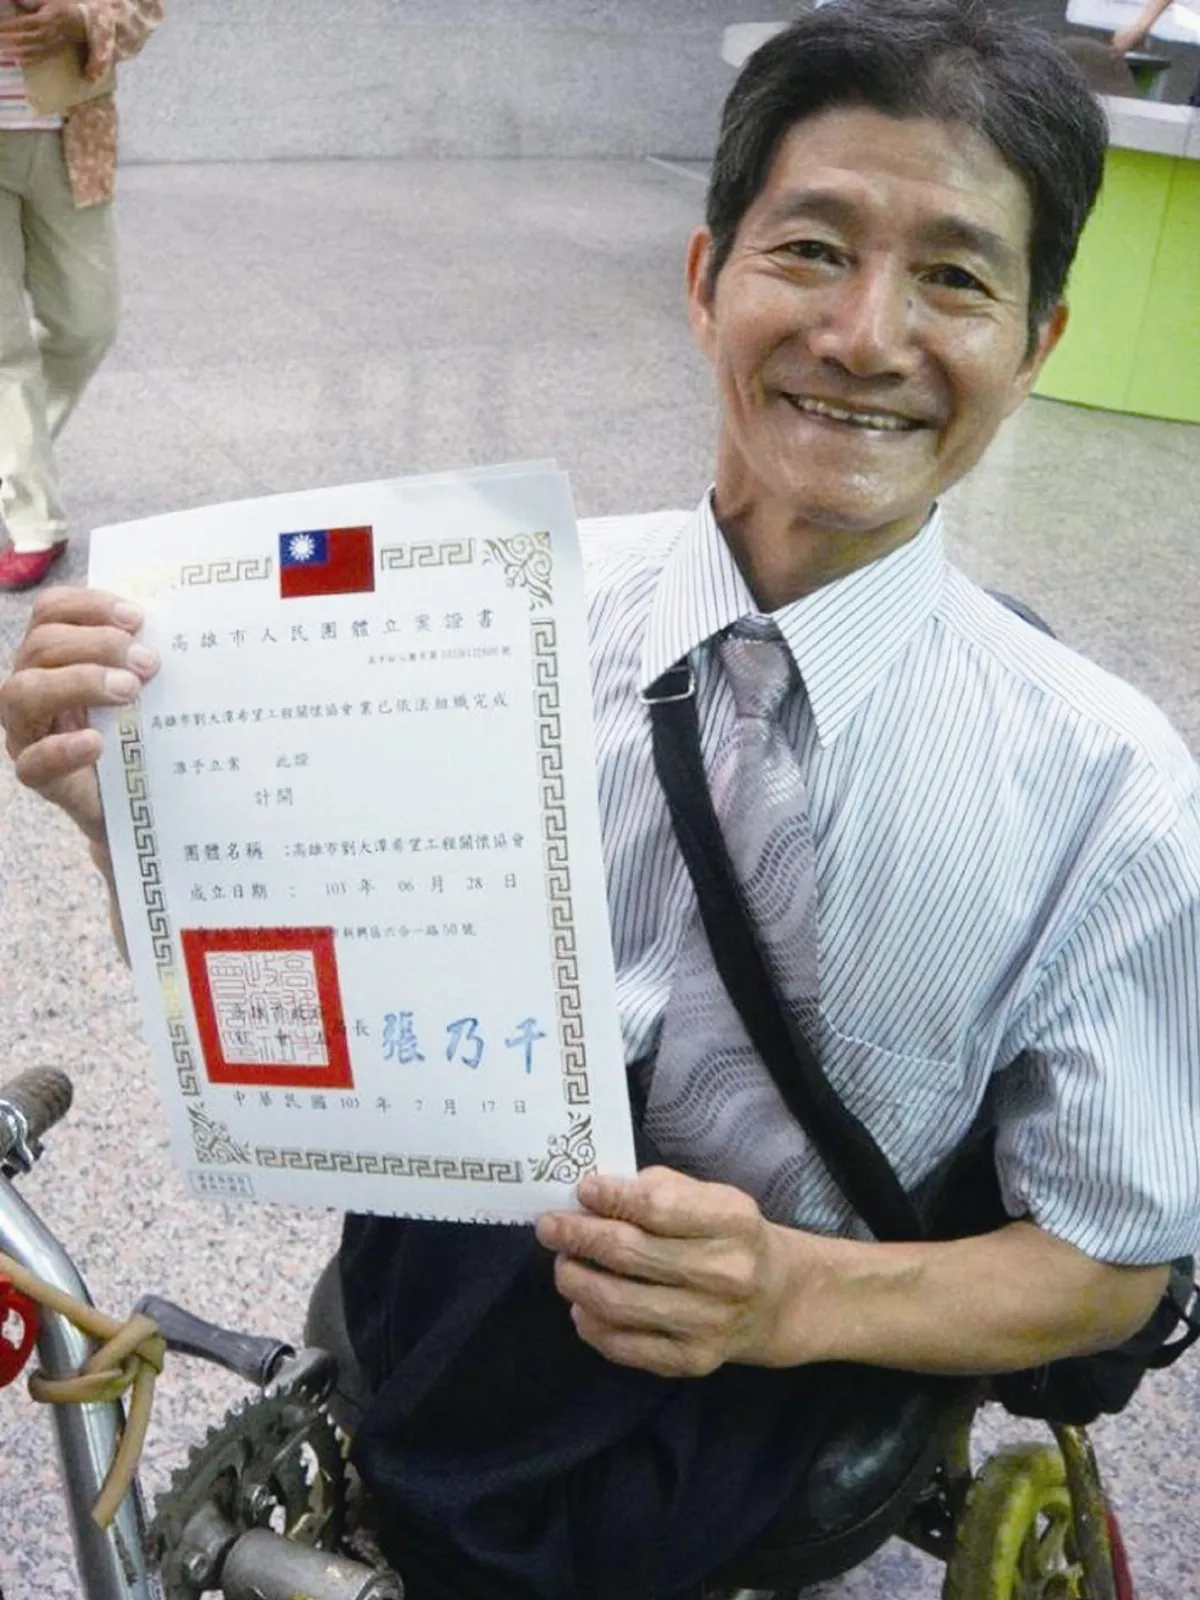 高雄市人民團體立案證書
高雄市劉大潭希望工程關懷協會業已依法組織完成
准予立案 此證
計開
團體名稱 :高雄市劉大潭希望工程關懷協會
成立日期 : 103 年 06 月 28 日
新興區六合一路50號
局長 張乃千
中華民國 103 年 7 月 17 日